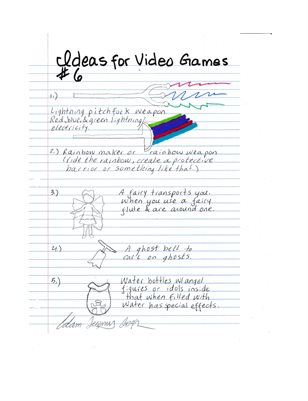 Ideas for Video Games
#6
1.) Lightning pitchfork weapon
Red, blue, & green lightning/
electricity.
2.) Rainbow maker or rainbow weapon
(ride the rainbow, create a protective
barrier or something like that.)
3.) A fairy transports you
when you use a fairy
flute & are around one.
4.) A ghost bell to
call on ghosts.
5.) Water bottles w/angel
figures or idols inside
that when filled with
water has special effects.